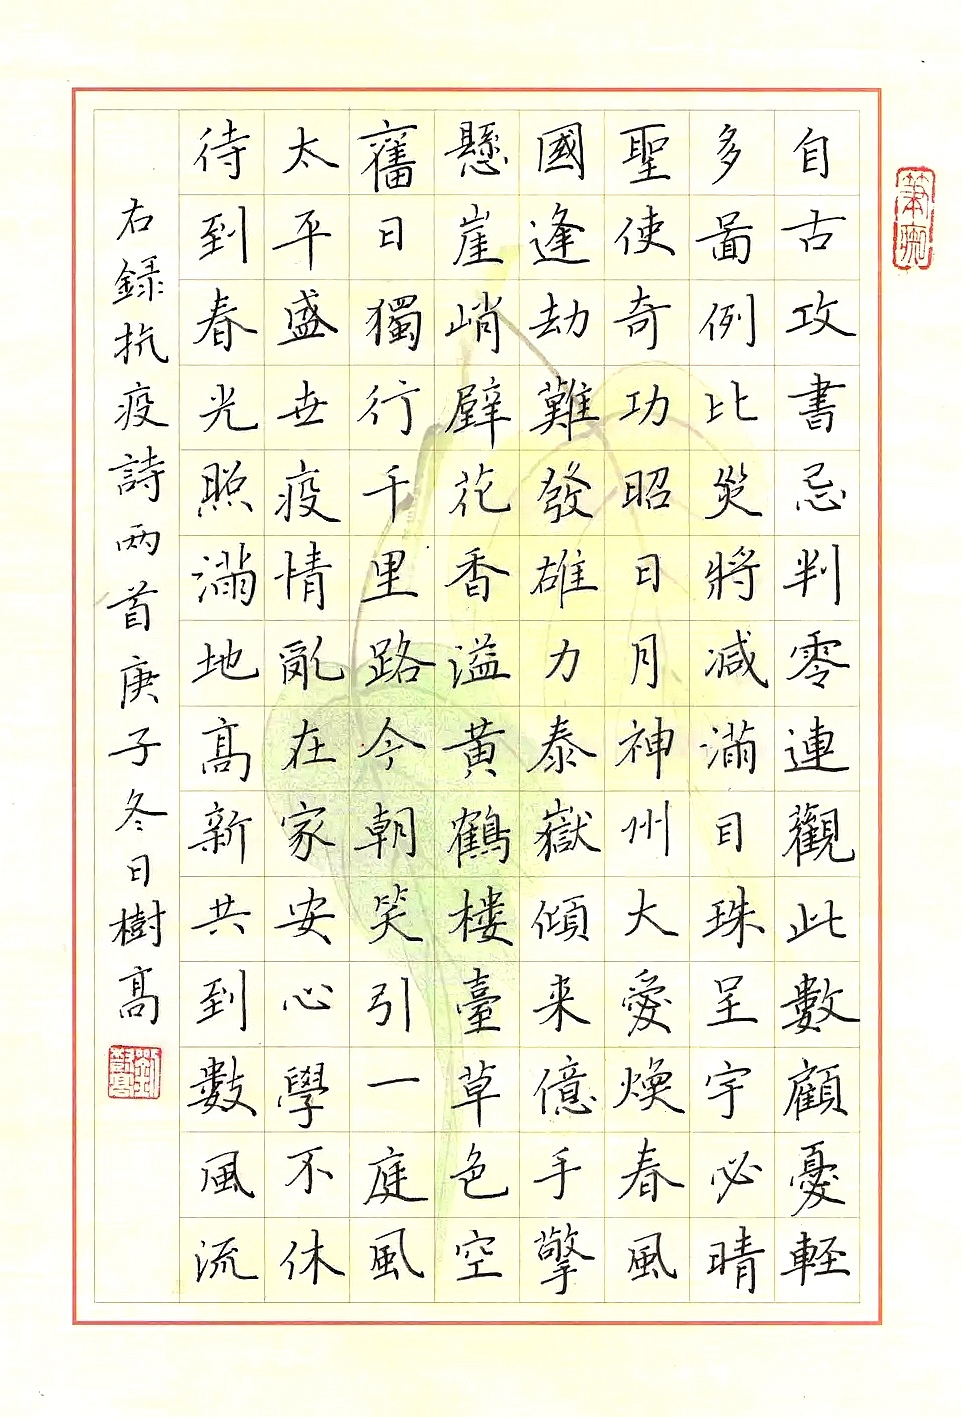 自古攻書忌判零連觀此數顧憂輕
多啚例比災將減滿目珠呈宇必晴
聖使奇功昭日月神州大愛煥春風
國逢劫難發雄力泰嶽傾来億手擎
懸崖峭壁花香溢黃鶴樓臺草色空
舊日獨行千里路今朝笑引一庭風
太平盛世疫情亂在家安心學不休
待到春光照滿地髙新共到數風流
右録抗疫詩两首庚子冬日樹髙